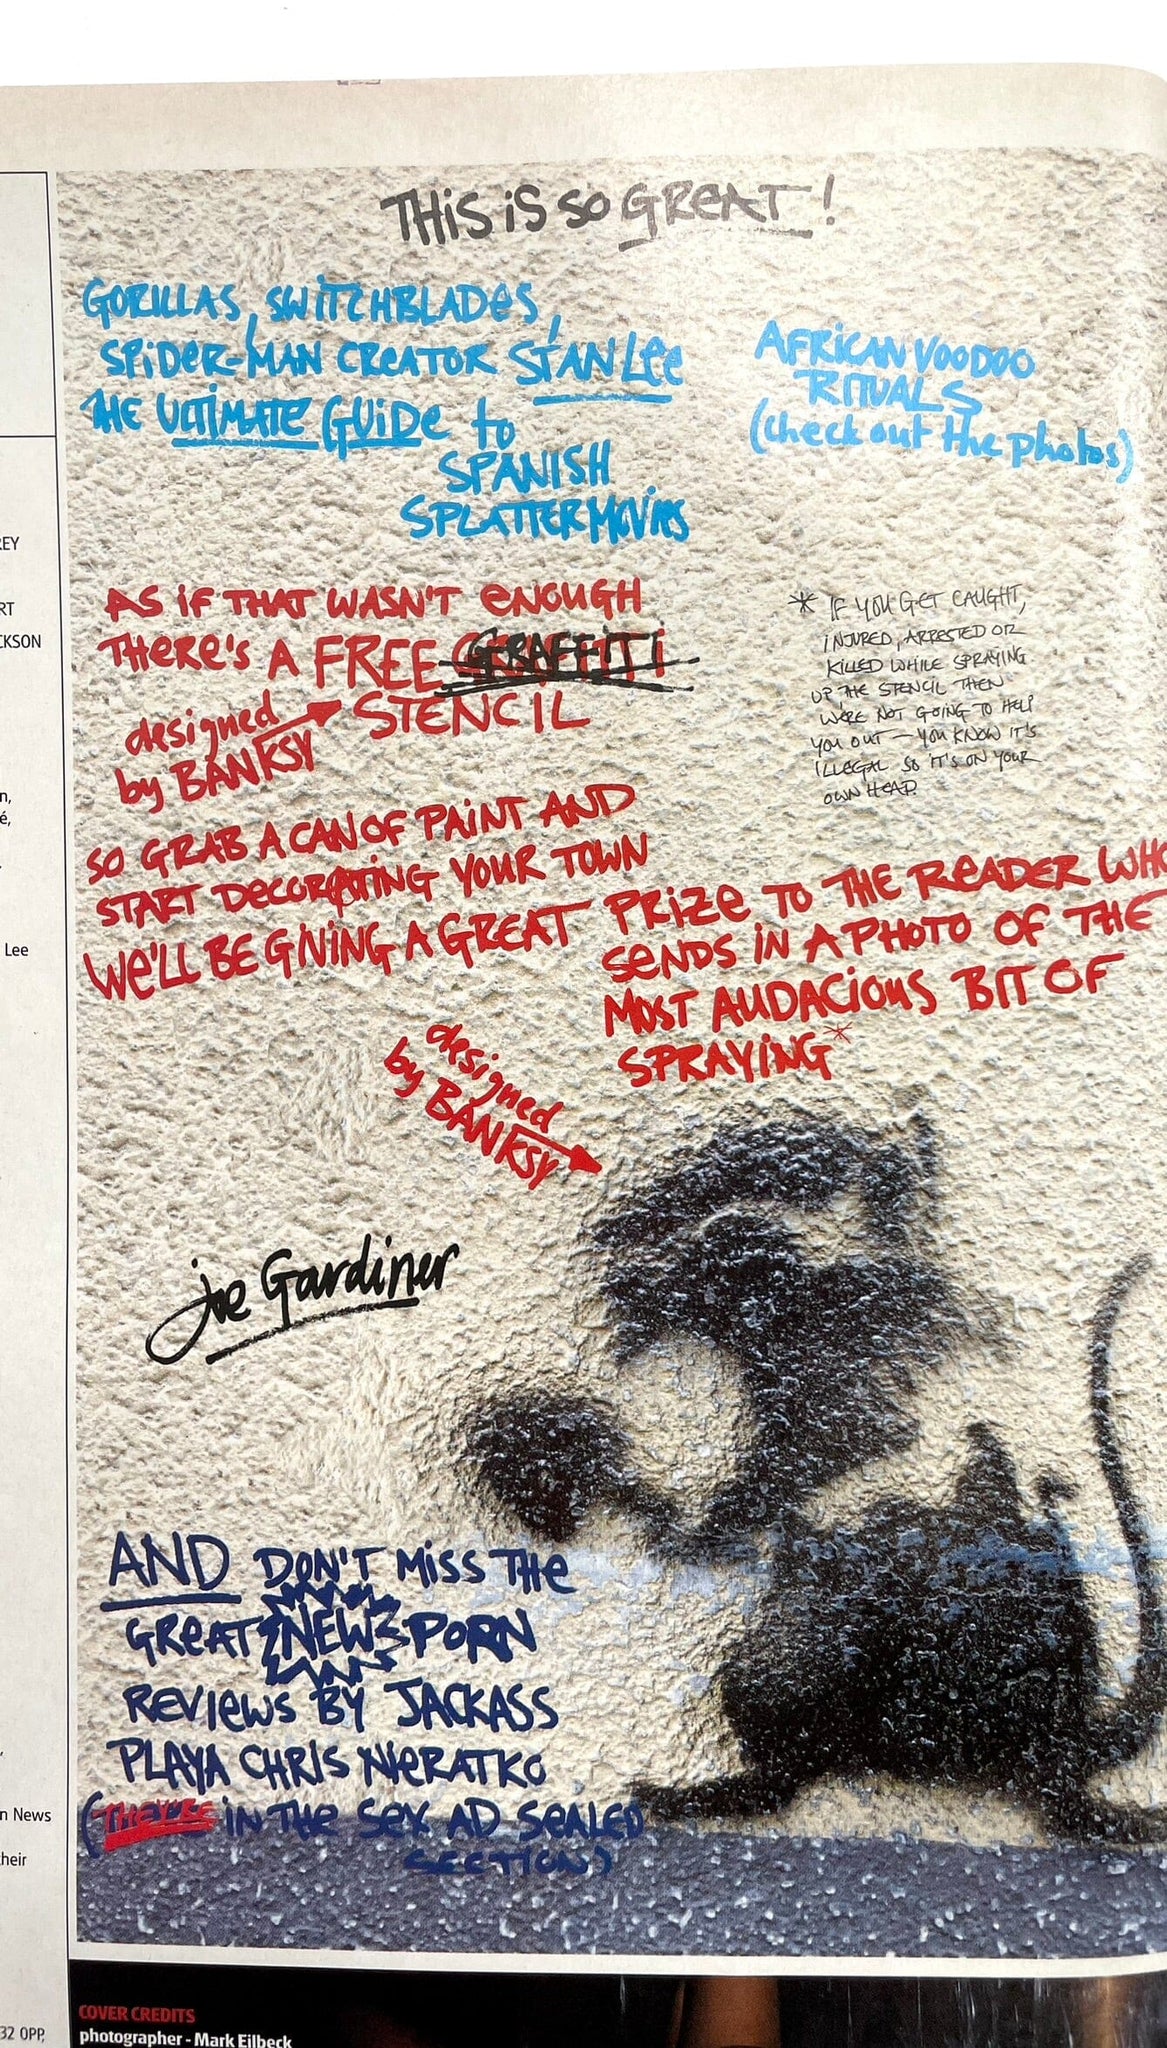 THIS IS SO GREAT!
GORILLAS, SWITCHBLADES,
SPIDER-MAN CREATOR STAN LEE
THE ULTIMATE GUIDE to
SPANISH
SPLATTER MOVIES
AFRICAN VOODOO
RITUALS
(check out the photos)
AS IF THAT WASN'T ENOUGH
THERE'S A FREE GRAFFITI
STENCIL
designed
by BANKSY
SO GRAB A CAN OF PAINT AND
START DECORATING YOUR TOWN
WE'LL BE GIVING A GREAT PRIZE TO THE READER WHO
SENDS IN A PHOTO OF THE
MOST AUDACIOUS BIT OF
SPRAYING*
* IF YOU GET CAUGHT,
INJURED, ARRESTED OR
KILLED WHILE SPRAYING
UP THE STENCIL THEN
WE'RE NOT GOING TO HELP
YOU OUT — YOU KNOW IT'S
ILLEGAL SO IT'S ON YOUR
OWN HEAD.
designed
by BANKSY
Joe Gardiner
AND DON'T MISS THE
GREAT NEW PORN
REVIEWS BY JACKASS
PLAYA CHRIS NIERATKO
(THEY'RE IN THE SEX AD SEALED
SECTION)
COVER CREDITS
photographer - Mark Eilbeck
EY
RT
CKSON
n,
é,
Lee
n News
heir
32 0PP,